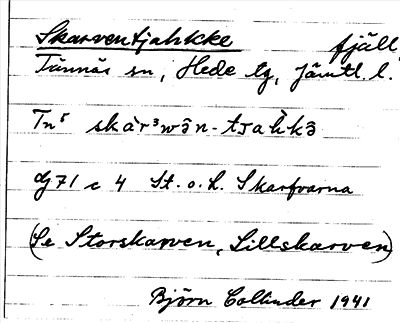 Skarventjahkke fjäll
Tännäs sn, Hede tg, Jämtl. l.
Tn⁵ skàr³wôn-tjahkô
G 71 c 4 St. o. L. Skarfvarna
(Se Storskarven, Lillskarven)
Björn Collinder 1941